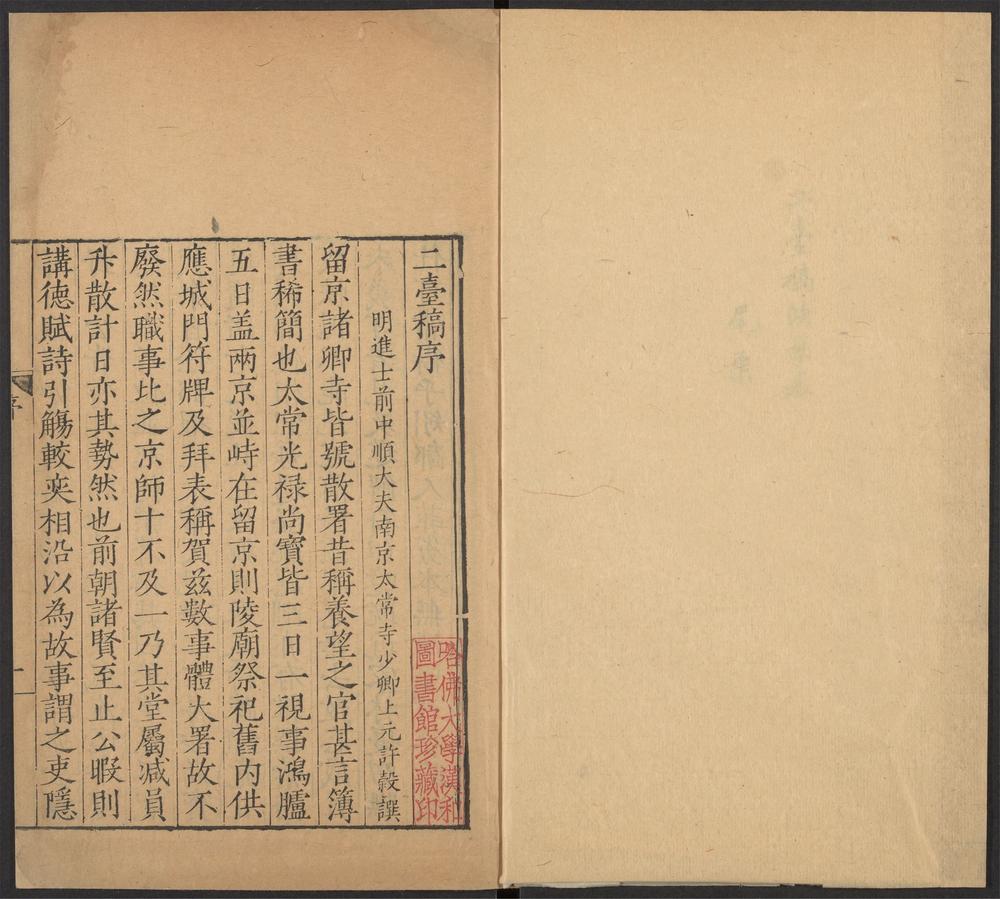 二臺稿序
明進士前中順大夫南京太常寺少卿上元許穀譔
留京諸卿寺皆號散署昔稱養望之官甚言簿
書稀簡也太常光祿尚寶皆三日一視事鴻臚
五日盖兩京並峙在留京則陵廟祭祀舊内供
應城門符牌及拜表稱賀兹數事體大署故不
廢然職事比之京師十不及一乃其堂屬减員
升散計日亦其勢然也前朝諸賢至止公暇則
講德賦詩引觴較奕相沿以為故事謂之吏隱
序
一
哈佛大學漢和
圖書館珍藏印